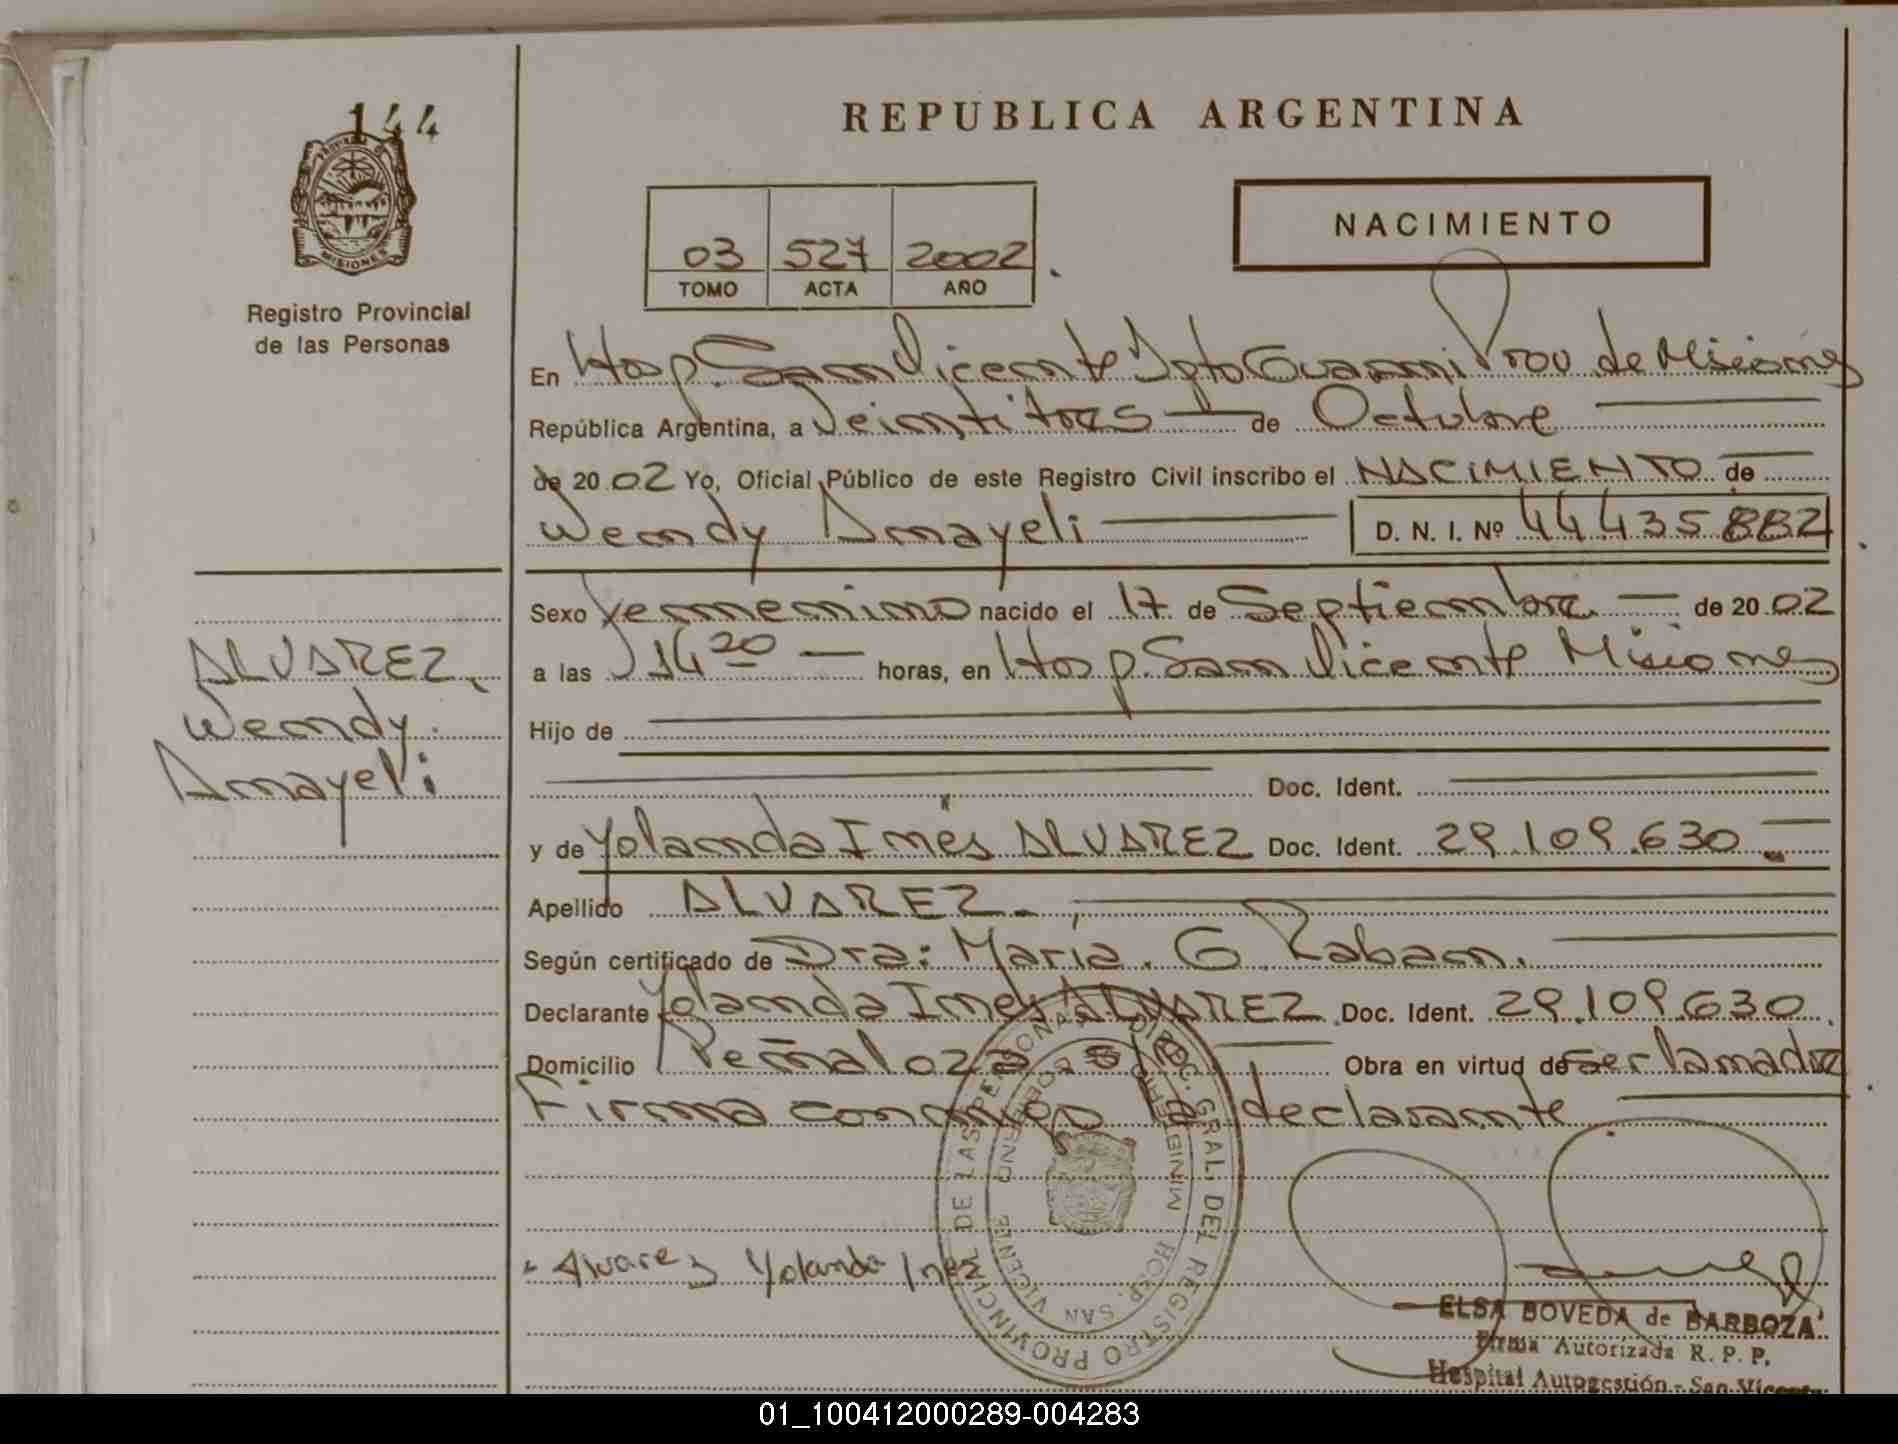 144
PROVINCIA DE
MISIONES
Registro Provincial
de las Personas
ALVAREZ,
Wendy.
Amayeli
REPUBLICA ARGENTINA
03 527 2002.
TOMO ACTA AÑO
NACIMIENTO
En Hosp. San Vicente Dpto Guarani Prov de Misiones
República Argentina, a Veintitres de Octubre
de 20 02 Yo, Oficial Público de este Registro Civil inscribo el NACIMIENTO de
Wendy Amayeli D. N. I. Nº 44435882
Sexo Femenino nacido el 17 de Septiembre de 20 02
a las 14 20 horas, en Hosp. San Vicente Misiones
Hijo de
Doc. Ident.
y de Yolanda Inés ALVAREZ Doc. Ident. 29.109.630.
Apellido ALVAREZ.
Según certificado de Dra: María. G Raban.
Declarante Yolanda Inés ALVAREZ Doc. Ident. 29.109.630.
Domicilio Peñaloza Obra en virtud de ser la madre
Firma conmigo la declarante
Alvarez Yolanda Inez
DIREC. GRAL. DEL REGISTRO PROVINCIAL DE LAS PERSONAS
MINISTERIO GOBIERNO
HOSP. SAN VICENTE
ELSA BOVEDA de BARBOZA
Firma Autorizada R. P. P.
Hospital Autogestión - San Vicente
01_100412000289-004283